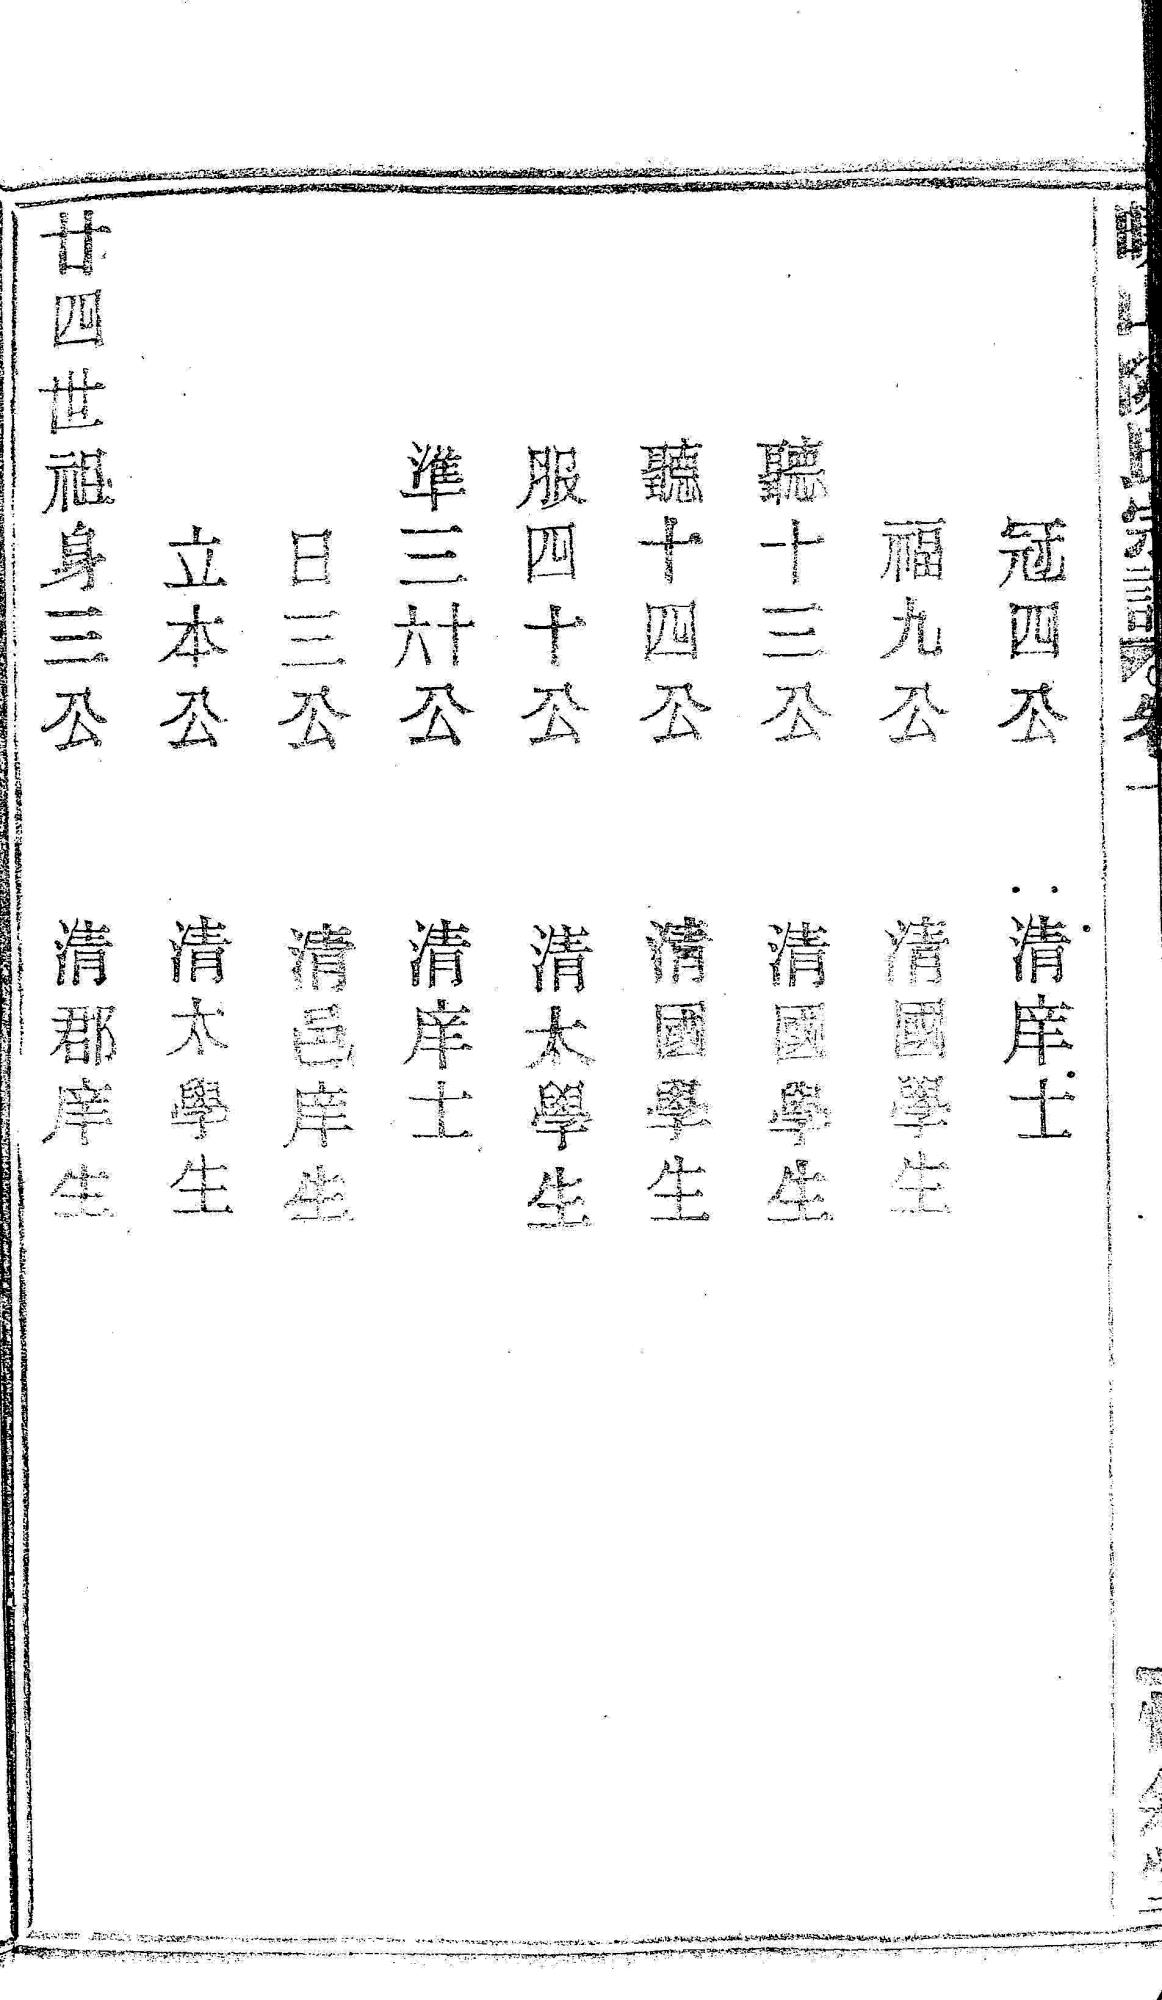 冠四公 清庠士
福九公 清國學生
聽十三公 清國學生
聽十四公 清國學生
服四十公 清太學生
準三十六公 清庠士
日三公 清邑庠生
立本公 清太學生
廿四世祖身三公 清郡庠生